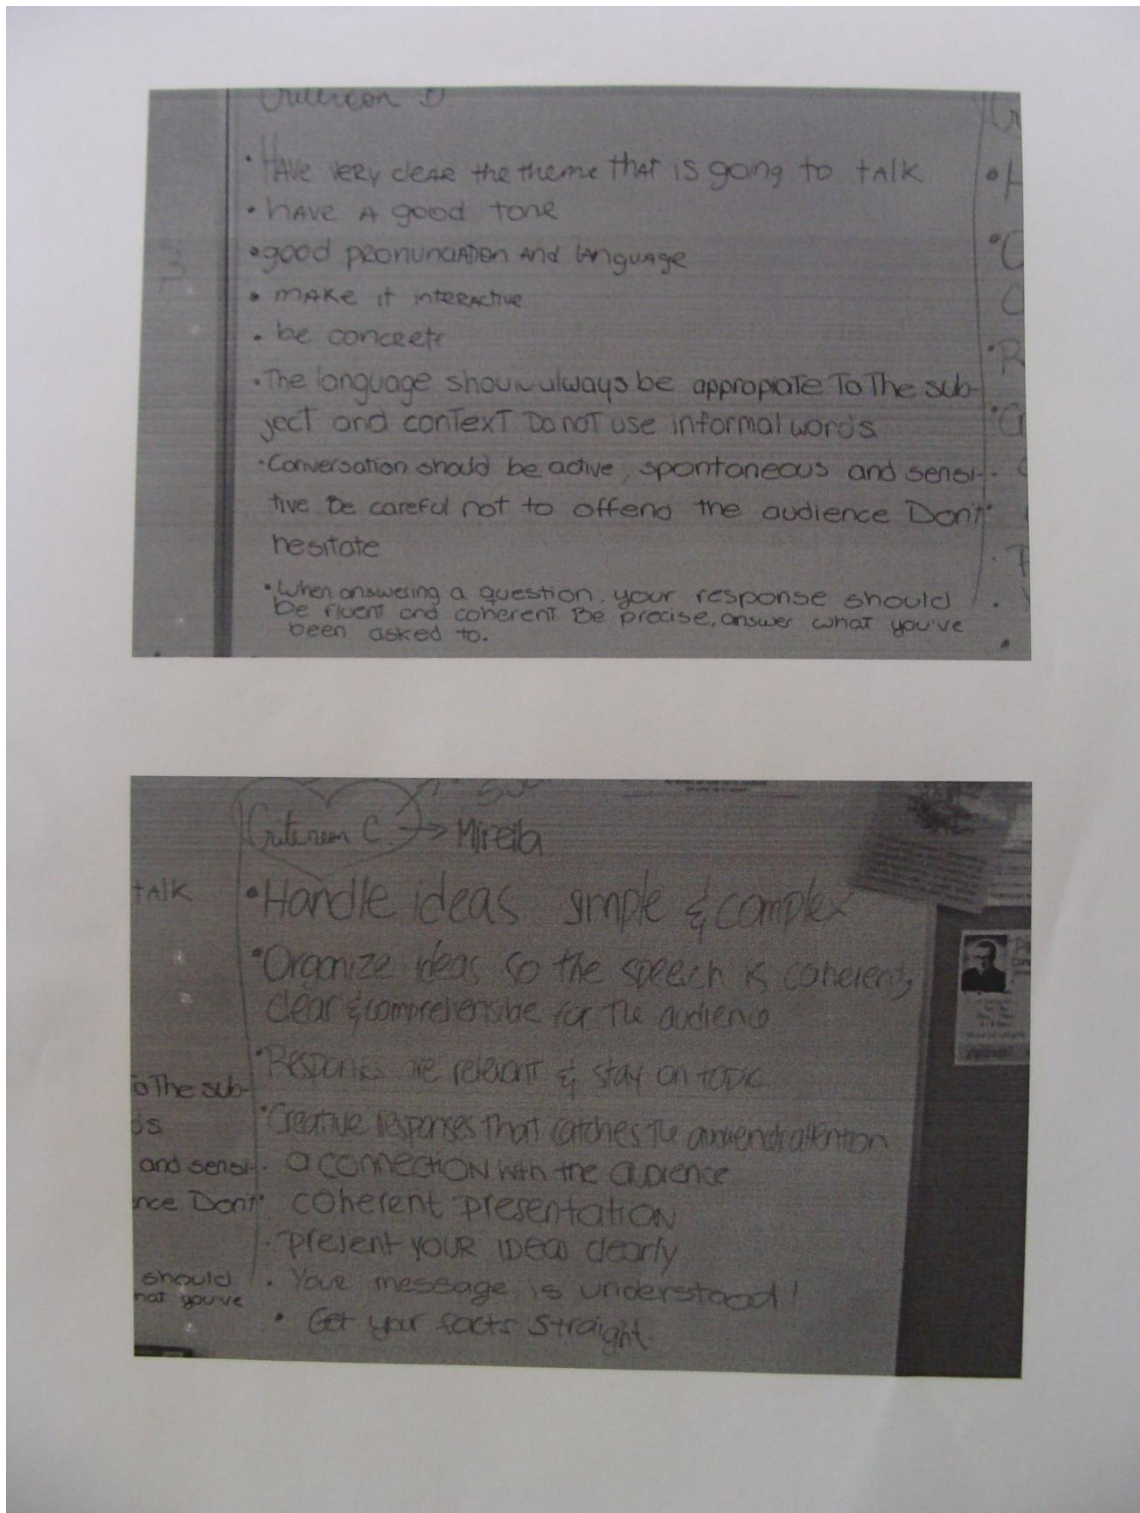 Criterion D
• HAVE VERY cleAR the theme THAT is going to tAlK
• hAVE A good tone
• good pronunciation AND lANguAge
• mAKe it interActive
• be concrete
• The language shoul always be appropiate To The sub-
ject and conTexT Do noT use informal words
• Conversation should be active, spontaneous and sensi-
tive Be careful not to offend the audience Don't
hesitate
• When answering a question, your response should
be fluent and coherent. Be precise, answer what you've
been asked to.
Criterium C → Mirella
tAlK
• Handle ideas simple & complex
• Organize ideas so the speech is coherent,
clear & comprehensible for The audience
• Responses are relevant & stay on topic.
o The sub-
• Creative responses that catches The audience's attention
and sensi-
• a connection with the audience
nce Don't
coherent presentation
• present YOUR IDEAS clearly
should
• Your message is understood!
hat you've
• Get your facts straight.